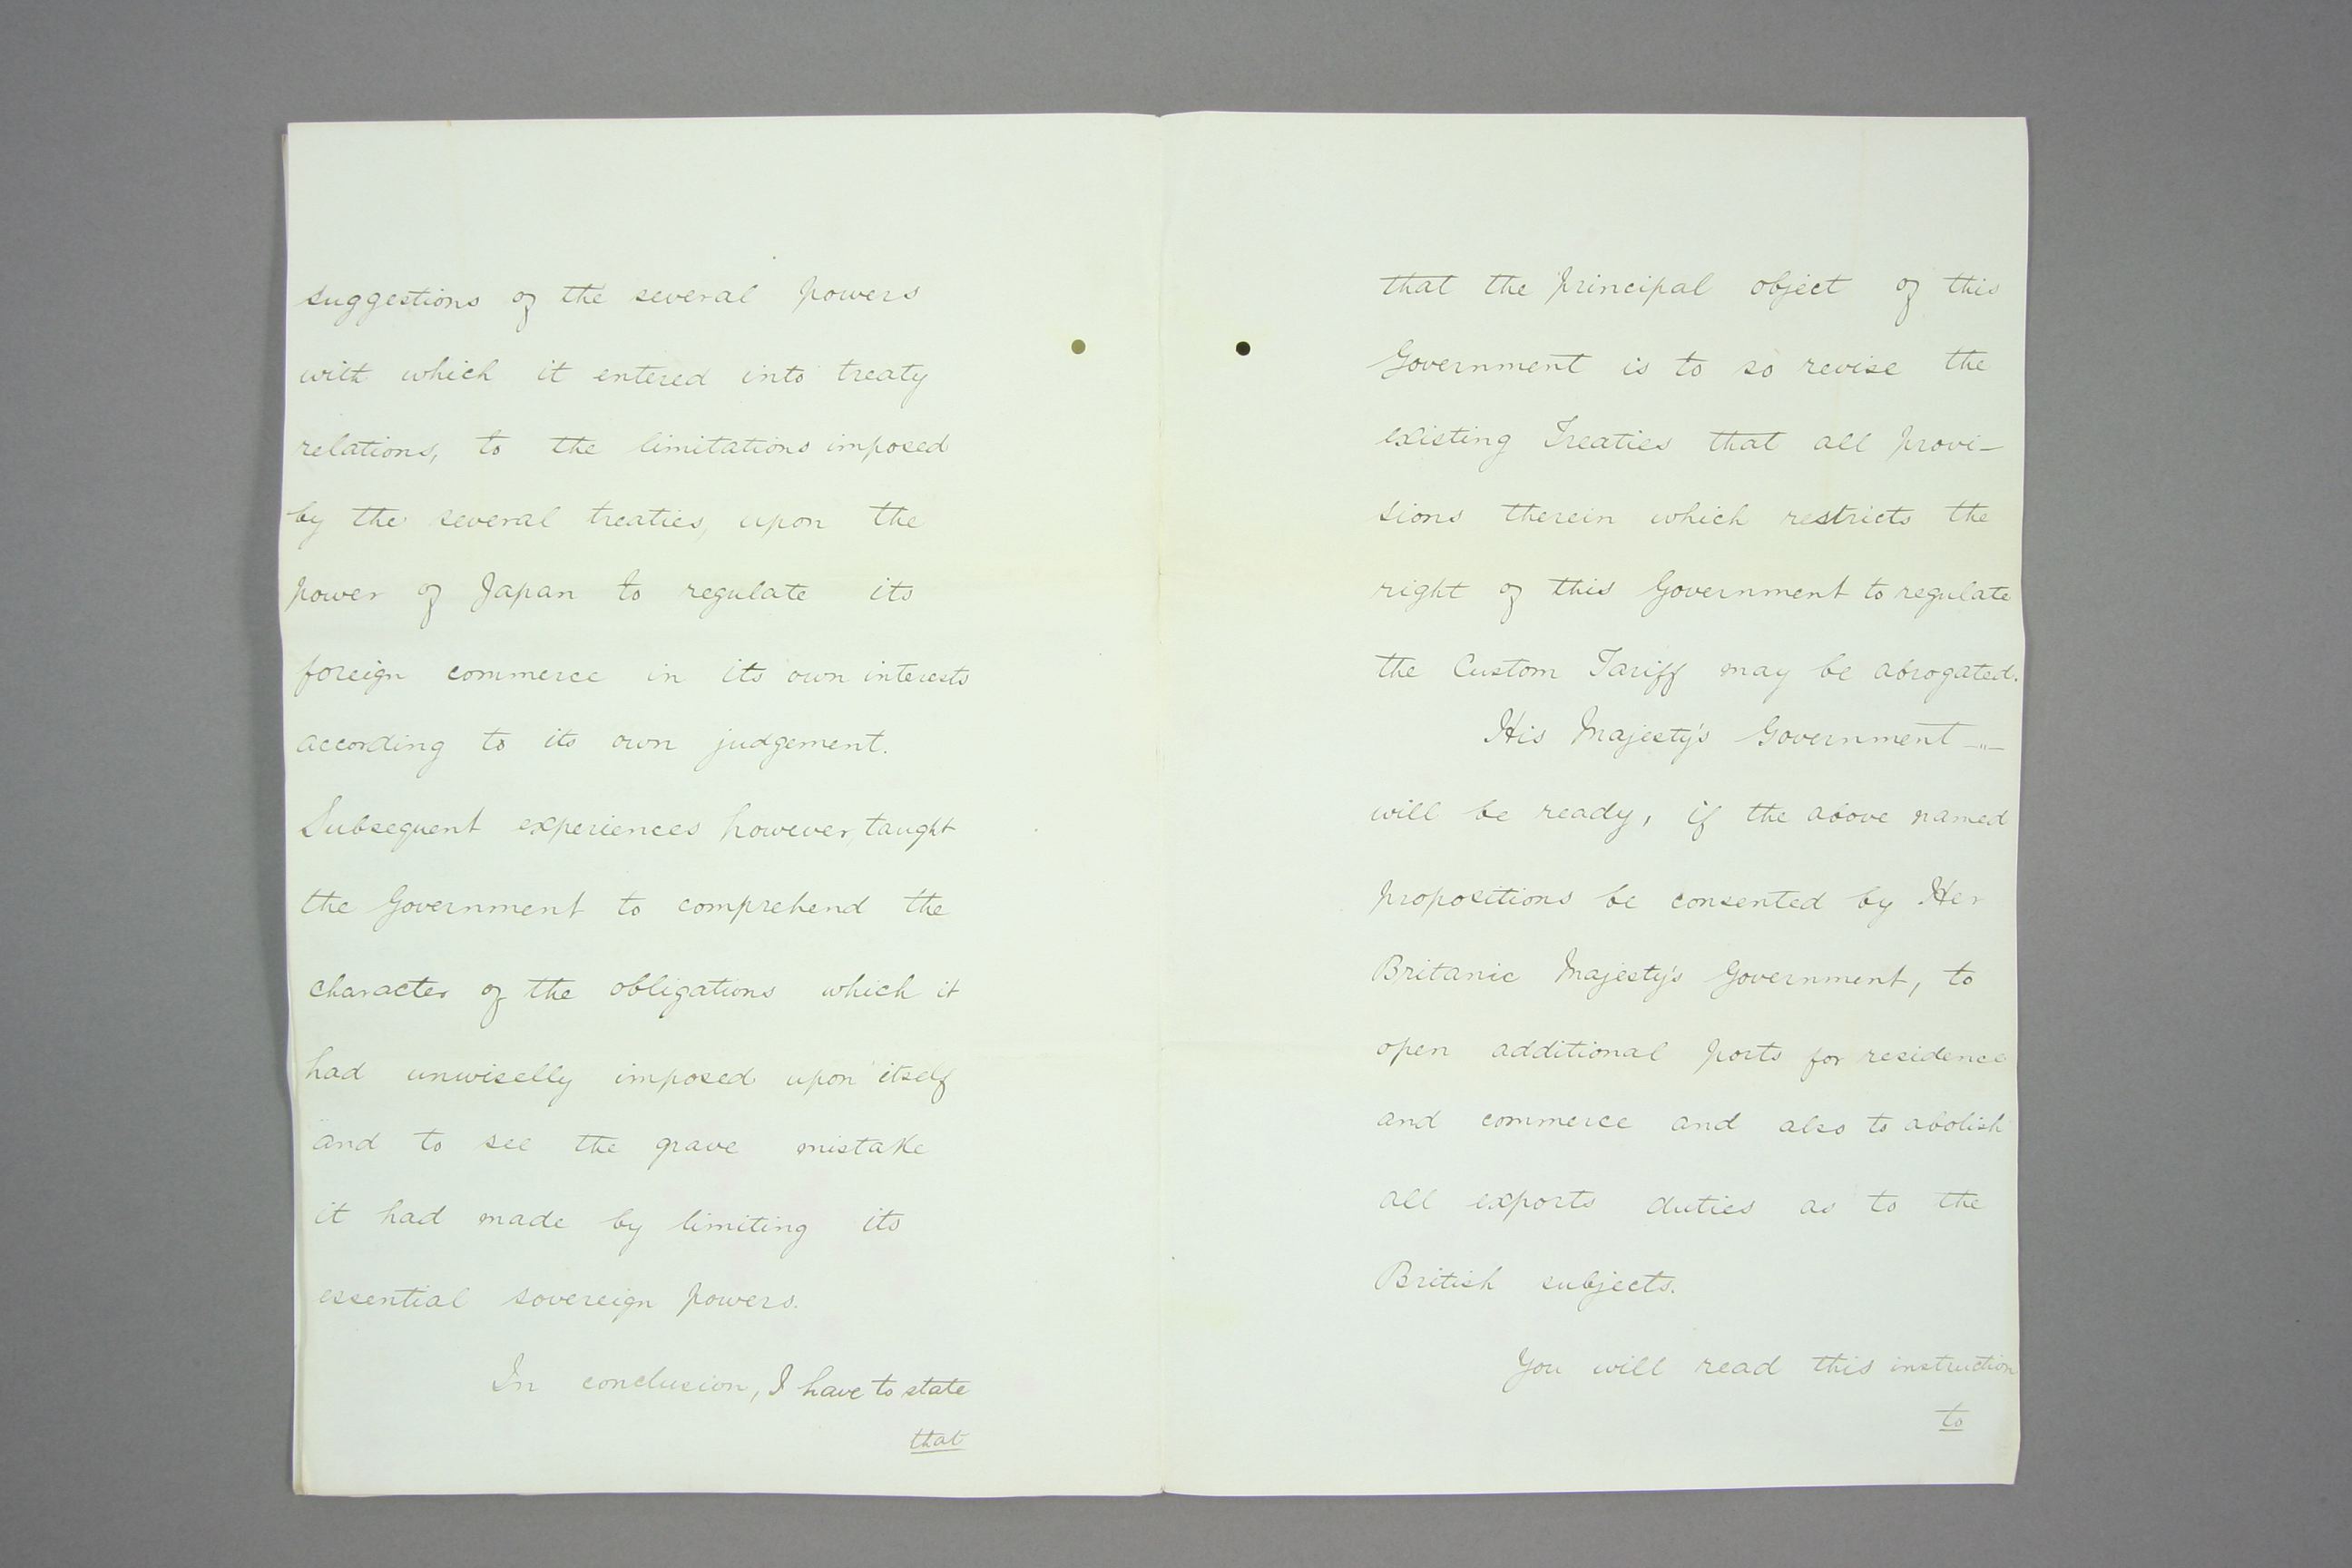 suggestions of the several powers
with which it entered into treaty
relations, to the limitations imposed
by the several treaties, upon the
power of Japan to regulate its
foreign commerce in its own interests
according to its own judgement.
Subsequent experiences however, taught
the Government to comprehend the
character of the obligations which it
had unwiselly imposed upon itself
and to see the grave mistake
it had made by limiting its
essential sovereign powers.
In conclusion, I have to state
that
that the principal object of this
Government is to so revise the
existing Treaties that all provi-
sions therein which restricts the
right of this Government to regulate
the Custom Tariff may be abrogated.
His Majesty's Government -"-
will be ready, if the above named
propositions be consented by Her
Britanic Majesty's Government, to
open additional ports for residence
and commerce and also to abolish
all exports duties as to the
British subjects.
You will read this instruction
to